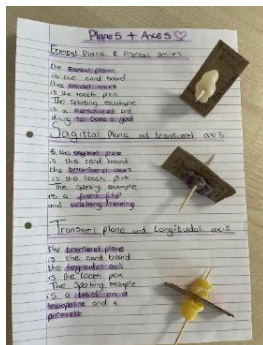 Planes + Axes
Frontal Plane & Frontal axies
the frontal plane
is the card board
the frontal axis
is the tooth pick
The Sporting example
is a
diving to save a goal
Sagittal Plane and transversl axis
the sagital plane
is the card board
the transversl axis
is the tooth pick
The Sporting example
is a front flip
and walking/running
Transversl plane and Longitudal axis
the transversl plane
is the card board
the longitudal axis
is the tooth pick
The Sporting example
is a on a
trampoline and a
pirouette